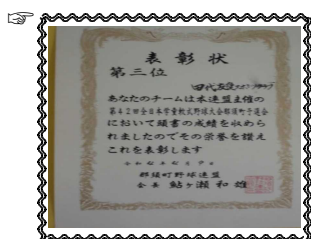 表彰状
第三位
あなたのチームは本連盟主催の
第42回全日本学童軟式野球大会那須町予選会
において頭書の成績を収めら
れましたのでその栄誉を讃え
これを表彰します
那須町野球連盟
会長 鮎ヶ瀬和雄